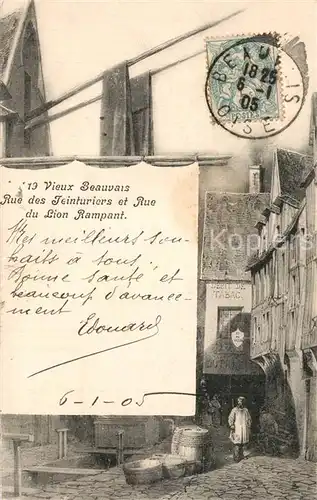 BEAUVAIS
18 25
6 -1
05
OISE
19 Vieux Beauvais
Rue des Teinturiers et Rue
du Lion Rampant.
Mes meilleurs sou-
haits à tous.
Bonne santé et
beaucoup d'avance-
ment
Edouard
6-1-05
DEBIT DE
TABAC
Delcampe